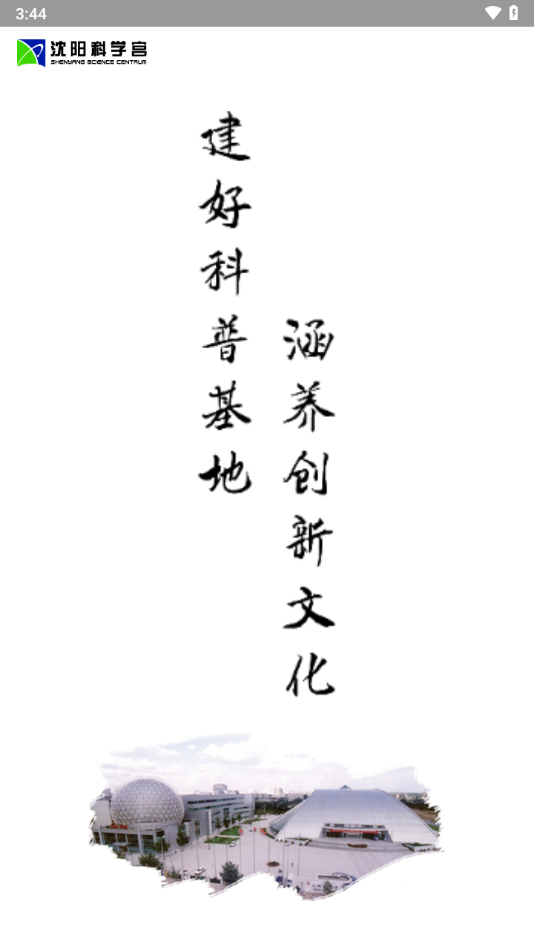 3:44
沈阳科学宫
SHENYANG SCIENCE CENTRUM
建好科普基地
涵养创新文化